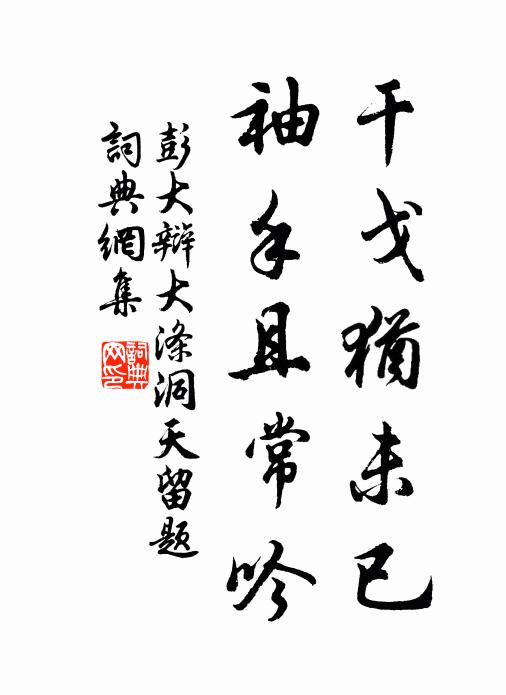 干戈猶未已
袖手且常吟
彭大辯大滌洞天留题
詞典網集
詞典网印